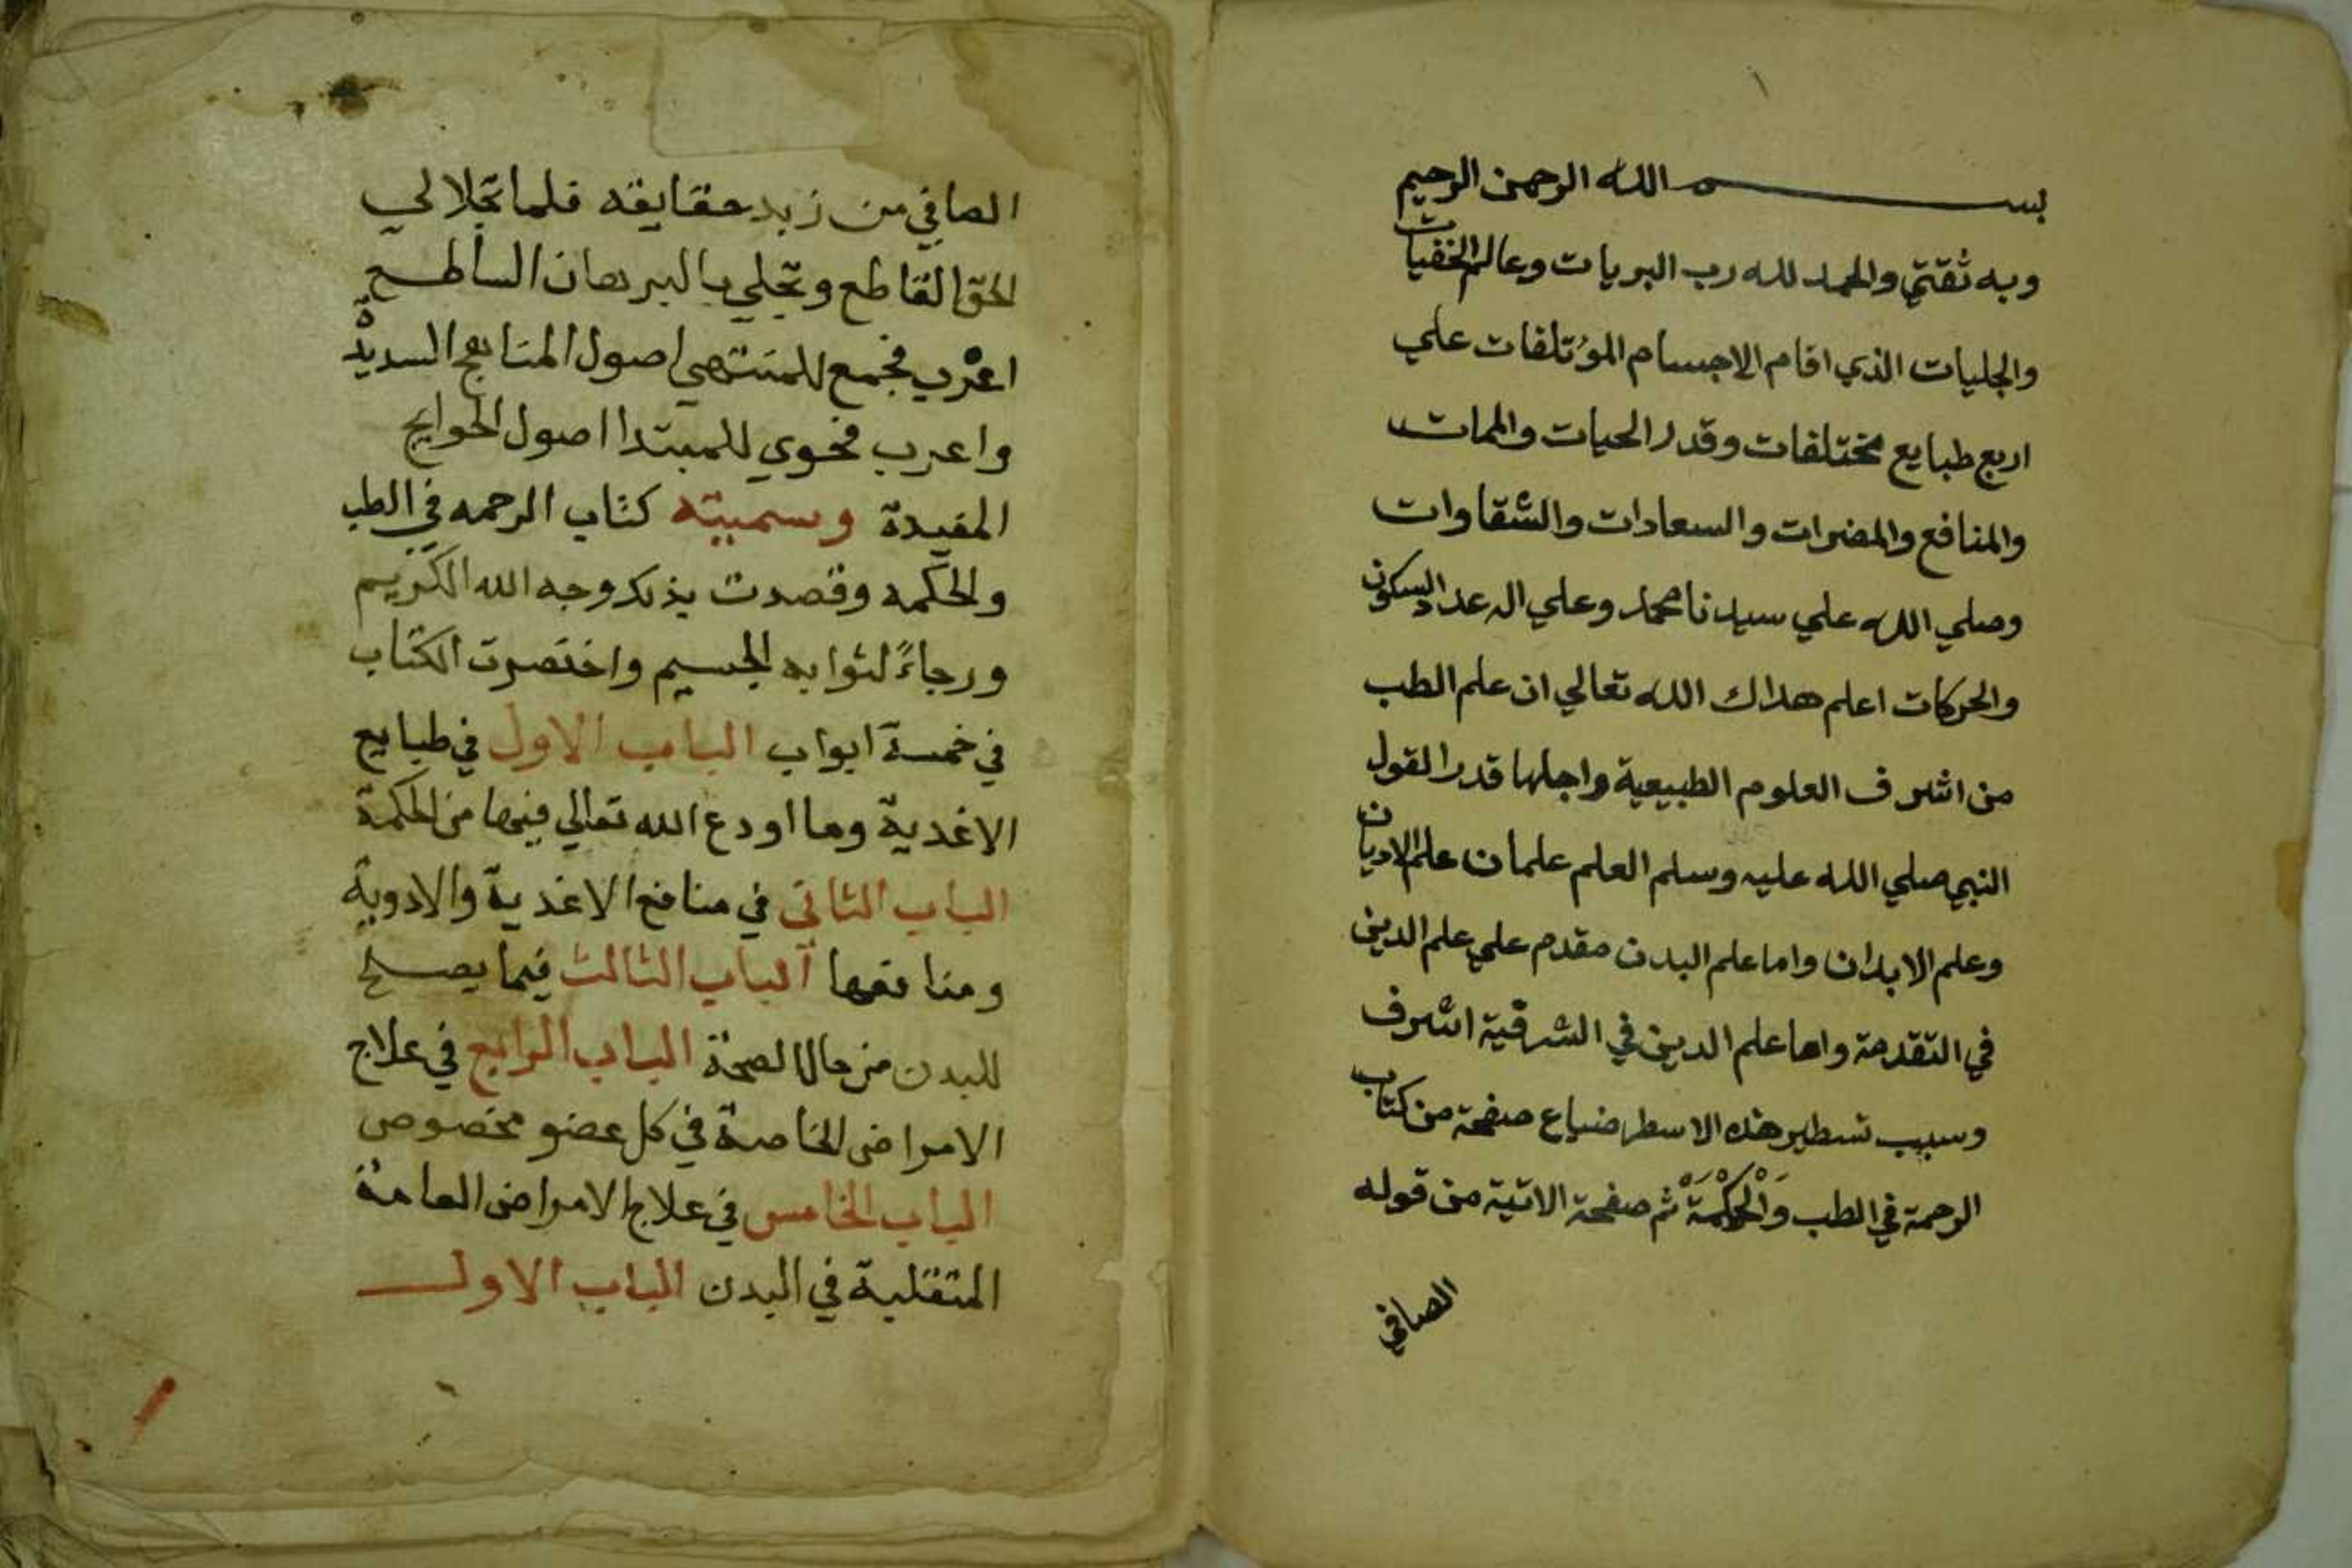 بسم الله الرحمن الرحيم
وبه ثقتي والحمد لله رب البريات وعالم الخفيات
والجليات الذي اقام الاجسام المؤتلفات علي
اربع طبايع مختلفات وقدر الحيات والممات
والمنافع والمضرات والسعادات والشقاوات
وصلي الله علي سيدنا محمد وعلي اله عدد السكون
والحركات اعلم هداك الله تعالي ان علم الطب
من اشرف العلوم الطبيعية واجلها قدرا لقول
النبي صلي الله عليه وسلم العلم علمان علم الاديان
وعلم الابدان واما علم البدن مقدم علي علم الدين
في التقدمة واما علم الدين في الشرقية اشرف
وسبب تسطير هذه الاسطر ضياع صفحة من كتاب
الرحمة في الطب وَالْحِكْمَةْ ثم صفحة الاتية من قوله
الصافي
الصافي من زبد حقايقه فلما تجلا لي
الحق القاطع وتجلي بالبرهان الساطع
اغرب فجمع للمنتهي اصول المناهج السديدة
واعرب فحوي للمبتدا اصول الحوايج
المفيدة وسميته كتاب الرحمه في الطب
والحكمه وقصدت بذلك وجه الله الكريم
ورجاءً لثوابه الجسيم واختصرت الكتاب
في خمسة ابواب الباب الاول في طبايع
الاغدية وما اودع الله تعالي فيها من الحكمة
الباب الثاني في منافع الاغدية والادوية
ومنافعها الباب الثالث فيما يصلح
للبدن من حال الصحة الباب الرابع في علاج
الامراض الخاصة في كل عضو مخصوص
الباب الخامس في علاج الامراض العامة
المتقلبة في البدن الباب الاول